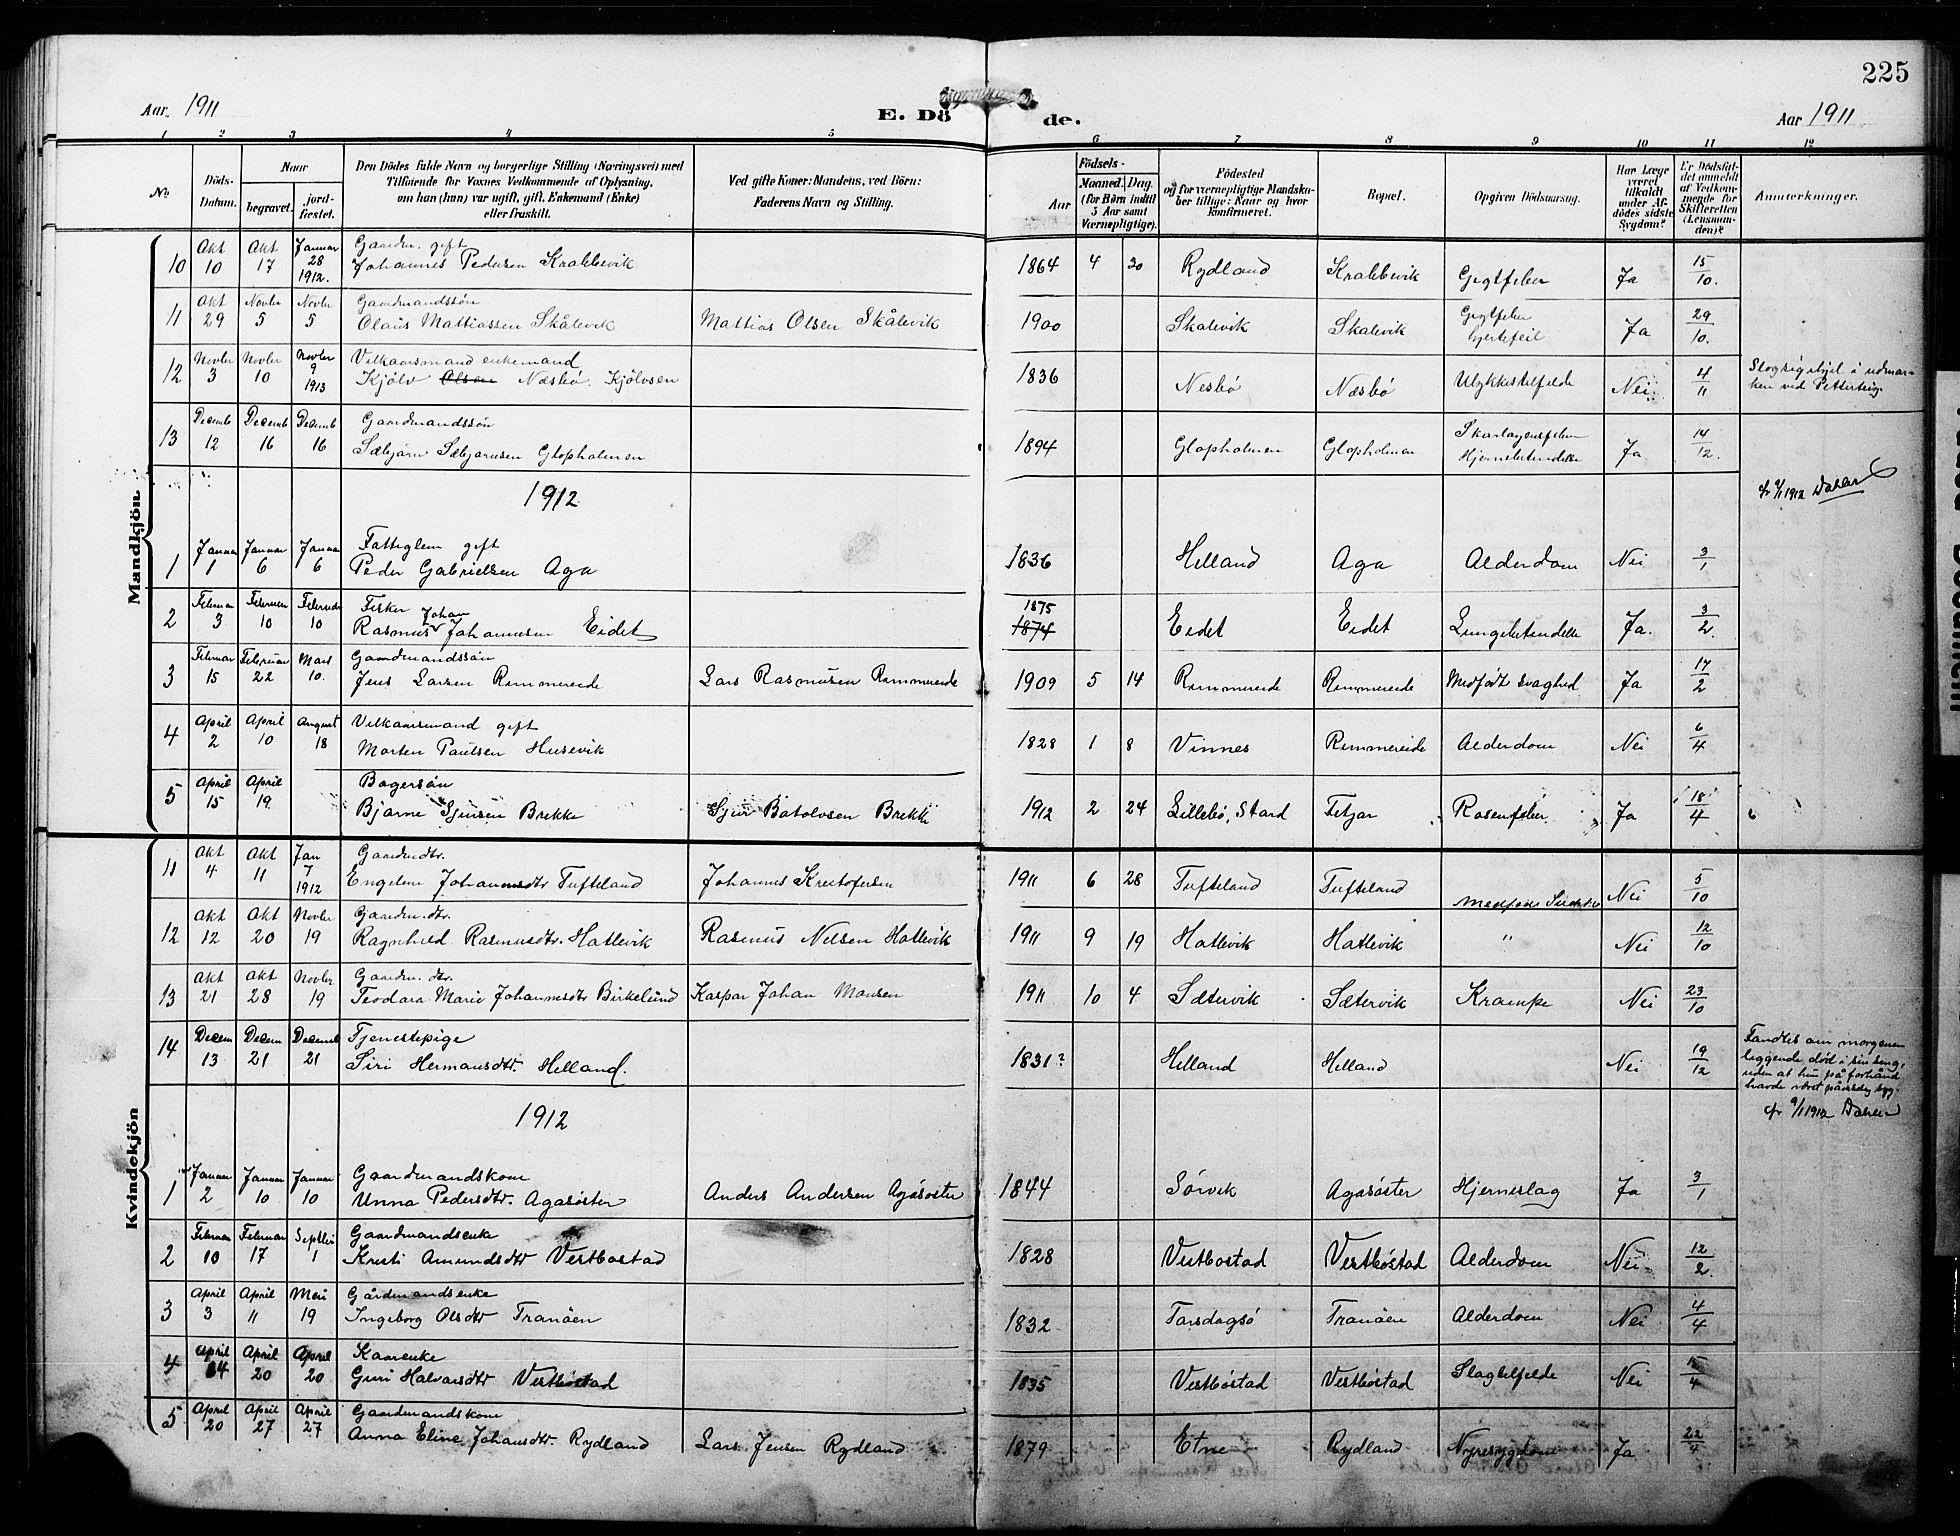 225
Aar 1911
E. Dö
de.
Aar 1911
1 2 3 4 5 6 7 8 9 10 11 12
No
Döds-Datum.
Naar
begravet.
jord-fæstet.
Den Dödes fulde Navn og borgerlige Stilling (Næringsvei) med
Tilföiende for Voxnes Vedkommende af Oplysning,
om han (hun) var ugift, gift, Enkemand (Enke)
eller fraskilt.
Ved gifte Koner: Mandens, ved Börn:
Faderens Navn og Stilling.
Födsels-
Aar
Maaned. Dag.
(for Börn indtil
5 Aar samt
Værnepligtige).
Födested
og for værnepligtige Mandska-
ber tillige: Naar og hvor
konfirmeret.
Bopæl.
Opgiven Dödsaarsag.
Har Læge
været
tilkaldt
under Af-
dödes sidste
Sygdom?
Er Dödsfal-
det anmeldt
af Vedkom-
mende for
Skifteretten
(Lensman-
den)?
Anmærkninger.
Mandkjön
10 Okt 10 Okt 17 Januar 28 1912. Gaardm. gift
Johannes Pedersen Krabbevik 1864 4 20 Rydland Krabbevik Gigtfeber Ja 15/10.
11 Okt 29 Novbr 5 Novbr 5 Gaardmandssön
Olaus Mattiassen Skålevik Mattias Olsen Skålevik 1900 Skalevik Skalevik Gigtfeber Hjertefeil Ja 29/10.
12 Novbr 3 Novbr 10 Novbr 9 1913 Vilkaarsmand enkemand
Kjölv Olsen Næsbö. Kjölvsen 1836 Nesbö Næsbö Ulykkestilfelde Nei 4/11 Slog sig ihjel i udmar-
ken ved Petterteig.
13 Decemb 12 Decemb 16 Decemb 16 Gaardmandssön
Sæbjörn Sæbjörnsen Glopholmen 1894 Glopholmen Glopholmen Skarlagensfeber Hjernebetendelse Ja 14/12.
1912 Dahler
1912
1 Januar 1 Januar 6 Januar 6 Fattiglem gift
Peder Gabrielsen Aga 1836 Helland Aga Alderdom Nei 3/1
2 Februar 3 Februar 10 Februar 10 Fisker
Rasmus Johan Johannesen Eidet 1875 1874 Eidet Eidet Lungebetendelse Ja. 3/2.
3 Februar 15 Februar 22 Mars 10. Gaardmandssön
Jens Larsen Rimmereide Lars Rasmusen Rimmereide 1909 5 14 Rimmereide Rimmereide Medfödt svaghed Ja 17/2
4 April 2 April 10 August 18 Vilkaarsmand gift
Morten Paulsen Husevik 1828 1 8 Vinnes Rimmereide Alderdom Nei 6/4
5 April 15 April 19 Bagersön
Bjarne Sjursen Brekke Sjur Batolvsen Brekke 1912 2 24 Lillebö, Stord Fitjar Rosenfeber Ja 18/4
Kvindekjön
11 Okt 4 Okt 11 Jan 7 1912 Gaardmdtr.
Engeline Johannesdtr Tufteland Johannes Kristofersen 1911 6 28 Tufteland Tufteland Nei 5/10
12 Okt 12 Okt 20 Novbr 19 Gaardm. dtr.
Ragnhild Rasmusdtr. Hatlevik Rasmus Nelsen Hatlevik 1911 9 19 Hatlevik Hatlevik " Nei 12/10
13 Okt 21 Okt 28 Novbr 19 Gaardm. dtr.
Teodora Marie Johannesdtr Birkelund Kaspar Johan Monsen 1911 10 4 Sætervik Sætervik Krampe Nei 23/10
14 Decem 13 Decem 21 Decemb 21 Tjenestepige
Siri Hermansdtr. Helland. 1831? Helland Helland Nei 19/12 Fandtes om morgenen
liggende död i sin seng,
uden at hun på forhånd
havde været påviselig syg.
cfr 9/1 1912 Dahler
1912
1 Januar 2 Januar 10 Januar 10 Gaardmandskone
Unna Pedersdtr. Agasöster Anders Andersen Agasöster 1844 Sörvik Agasöster Hjerneslag Ja 3/1
2 Februar 10 Februar 17 Septbr 1 Gaardmandsenke
Kristi Amundsdtr Vestbostad 1828 Vestbostad Vestböstad Alderdom Nei 12/2.
3 April 3 April 11 Mai 19 Gårdmandsenke
Ingeborg Olsdtr Tranöen 1832 Tranöen Alderdom Nei 4/4
4 April April 20 April 20 Kaarenke
Guri Halvorsdtr Vestböstad 1835 Vestböstad Vestböstad Slagtilfelde Nei 15/4
5 April 20 April 27 April 27 Gaardmandskone
Anna Eline Johansdtr. Rydland Lars Jensen Rydland 1879 Etne Rydland Nyresygdom Ja 22/4.